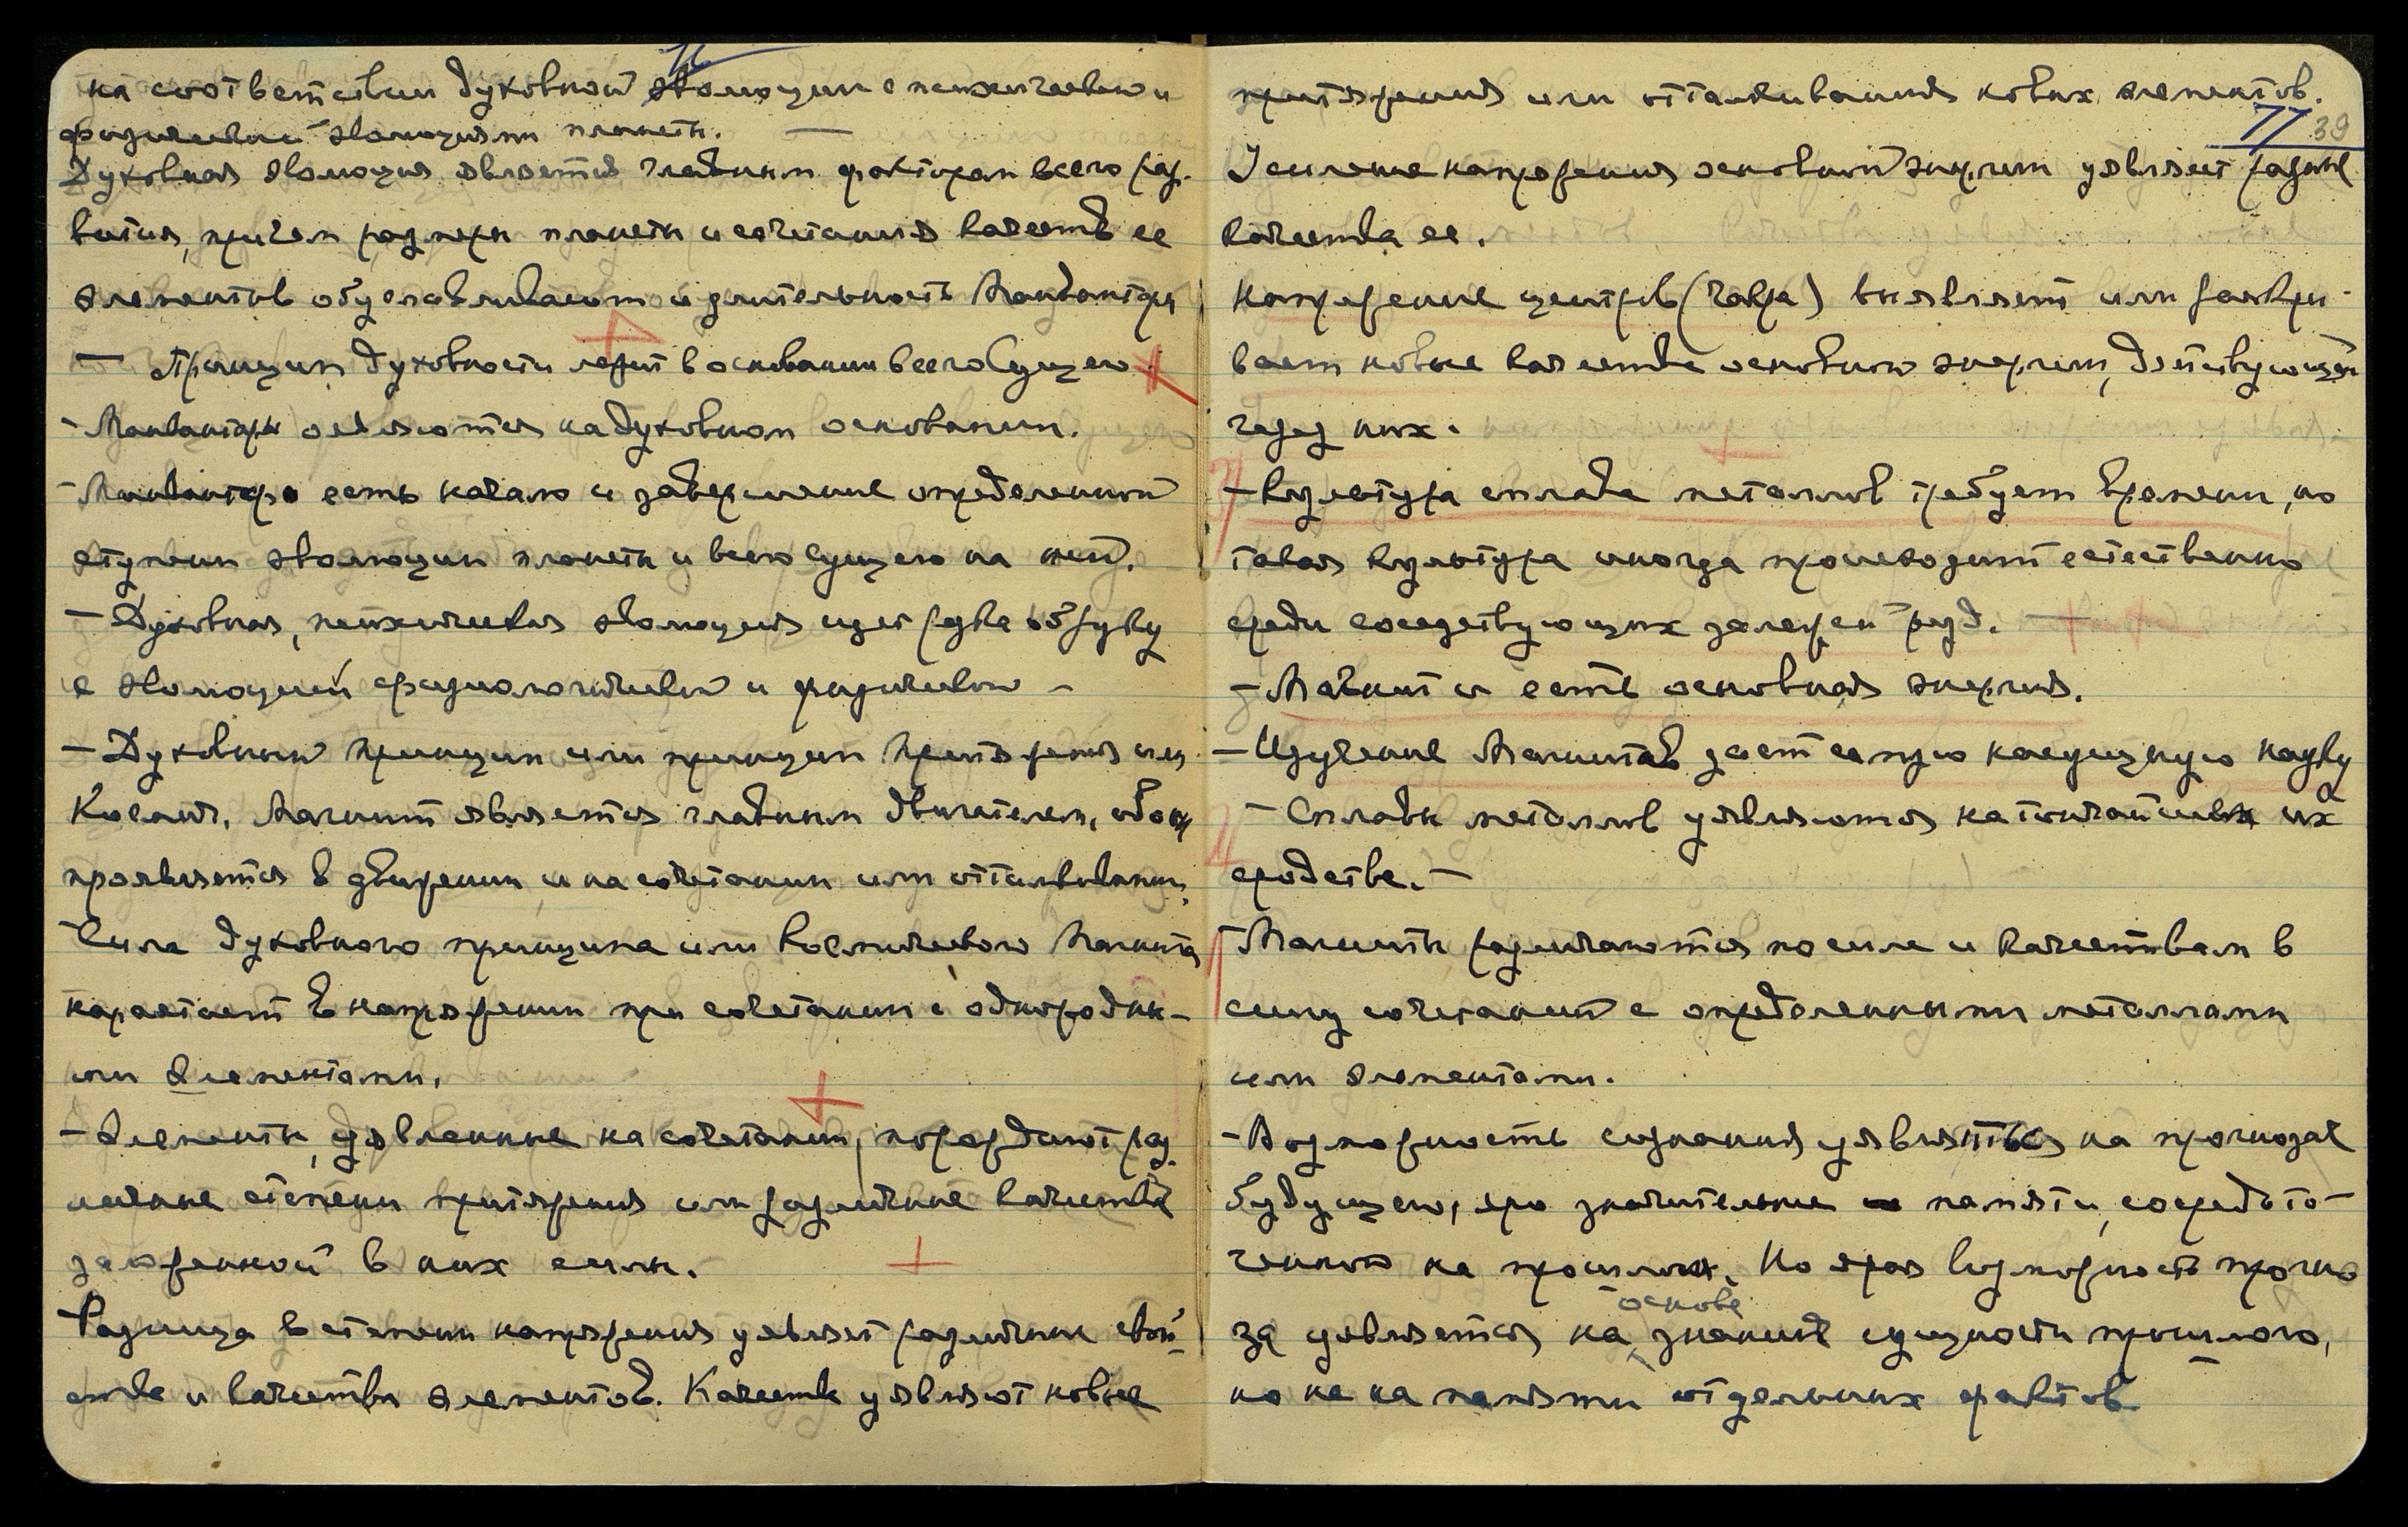 76
на соответствии духовной эволюции с психической и
физической эволюциями планеты. —
Духовная эволюция является главным фактором всего раз-
вития, причем размеры планеты и сочетания качеств ее
элементов обуславливают и длительность Манвантары
— Принцип духовности лежит в основании всего Сущего.
- Манвантары являются на духовном основании.
- Манвантара есть начало и завершение определенной
ступени эволюции планеты и всего Сущего на ней.
- Духовная, психическая эволюция идет рука об руку
с эволюцией физиологической и физической -
- Духовный принцип или принцип притяжения или
Космич. Магнит является главным двигателем,
проявляется в движении и на сочетании или отталкивании,
Сила духовного принципа или Космического Магнита
нарастает в напряжении при сочетании с однородны-
ми элементами.
- Элементы, уявленные на сочетании, порождают раз-
личные степени притяжения или различные качества
заложенной в них силы.
- Разница в степени напряжения уявляет различные свой-
ства и качества элементов. Качества уявляют новые
притяжения или отталкивания новых элементов.
77 39
Усиление напряжения основной энергии уявляет разные
качества ее.
Напряжение центров (чакр) выявляет или раскры-
вает новые качества основной энергии, действующей
через них.
- Культура сплава металлов требует времени, но
такая культура иногда происходит естественно
среди соседствующих залежей руд. —
- Магнит и есть основная энергия.
- Изучение Магнитов дает самую насущную науку
- Сплавы металлов уявляются на тончайшем их
сродстве. -
- Магниты различаются по силе и качествам в
силу сочетаний с определенными металлами
или элементами.
- Возможность сознания уявляться на прогнозе
будущего, яро значительнее памяти, сосредото-
ченной на прошлом. Но ярая возможность прогно-
основе
за уявляется на знания сущности прошлого,
но не на памяти отдельных фактов